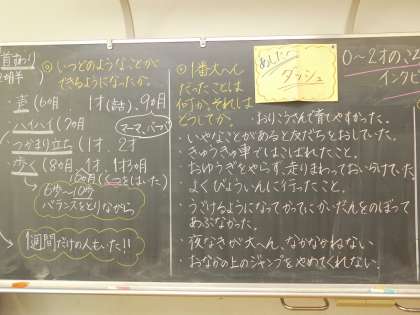 首すわり
2カ月半
◎いつどのようなことが
できるようになったか。
・声(6カ月 1才(お話)、9カ月
ママ、パパ
・ハイハイ(7カ月
・つかまり立ち(1才、2才
・歩く(8カ月、1才、1才3カ月
6歩~10歩
バランスをとりながら
1週間だけの人もいた!!
◎1番大へん
だったことは
何か、それは
どうしてか。
あしたへ
ダッシュ
0~2才の
インタビ
・おりこうさんで育てやすかった。
・いやなことがあると友だちをおしていた。
・きゅうきゅう車ではこばれたこと。
・おゆうぎをやらず、走りまわっておいらけていた
・よくびょういんに行ったこと。
・うごけるようになってかってにかいだんをのぼって
あぶなかった。
・夜なきが大へん、なかなかねない
・おなかの上のジャンプをやめてくれない。